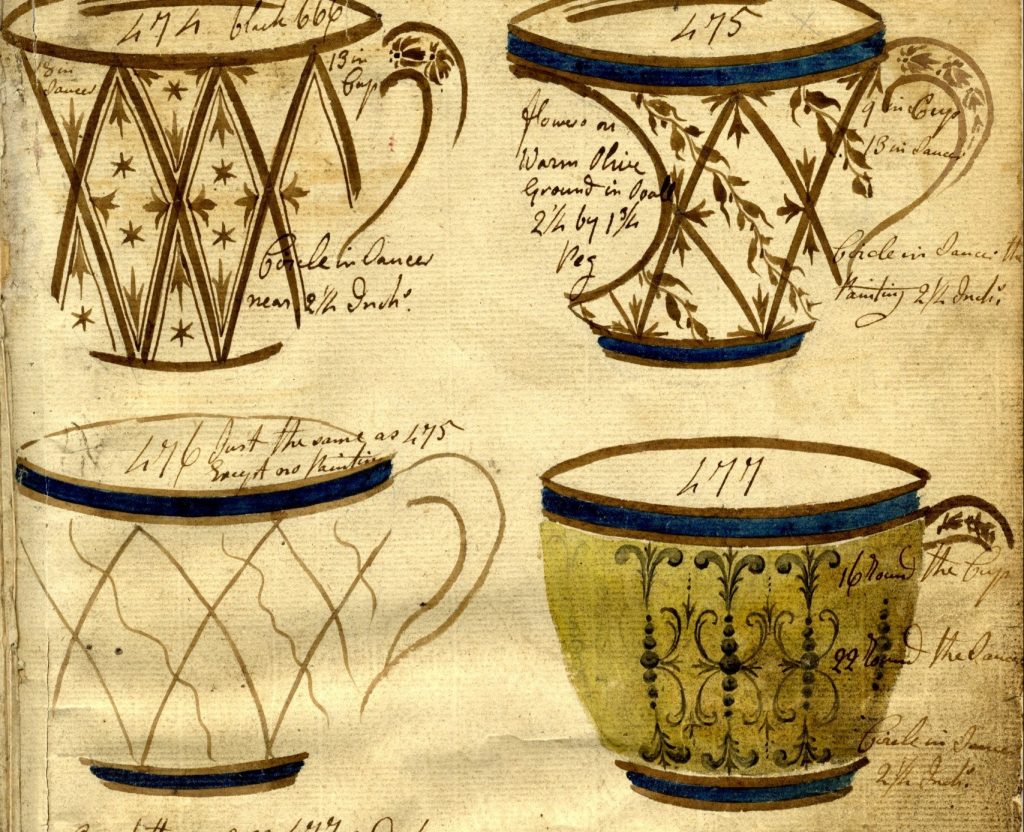 474 black 666
18 in
Saucer
13 in
Cup
Circle in Saucer
near 2½ Inchs.
475
flowers on
Warm Olive
Ground in
2¼ by 1¾
Peg
9 in Cup
13 in Saucer
Circle in Saucer the
Painting 2½ Inchs.
476 Just the same as 475
Except no Painting
477
16 Round the Cup
22 Round the Saucer
Circle in Saucer
2½ Inchs.